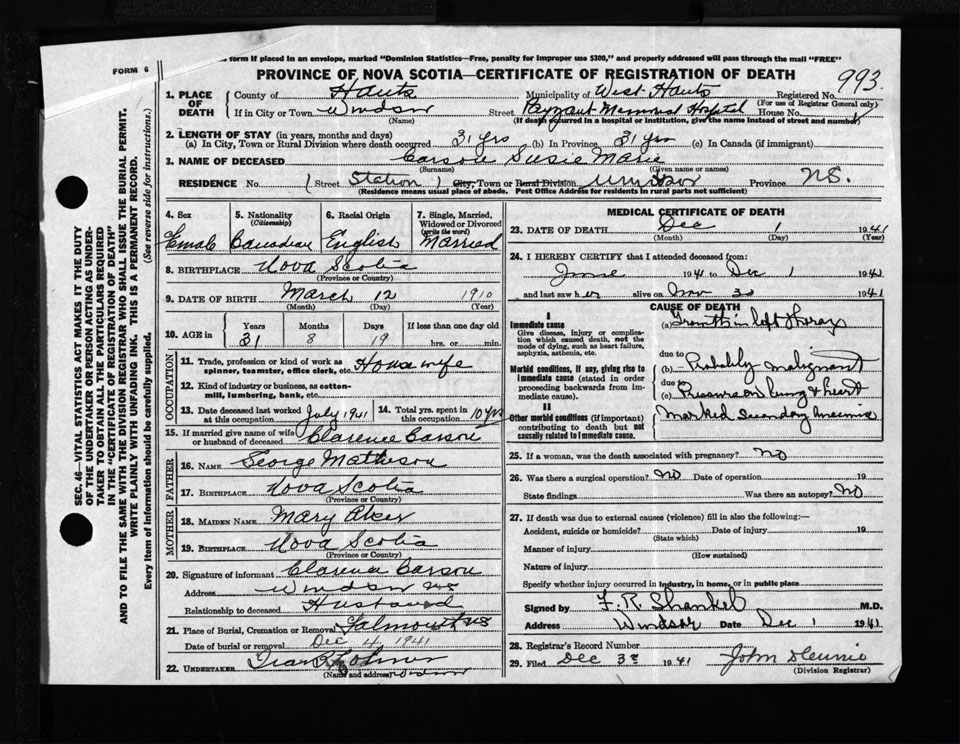 FORM 6
form if placed in an envelope, marked "Dominion Statistics—Free, penalty for improper use $300," and properly addressed will pass through the mail "FREE"
PROVINCE OF NOVA SCOTIA—CERTIFICATE OF REGISTRATION OF DEATH
993
1. PLACE OF DEATH County of Hants Municipality of West Hants Registered No.
(For use of Registrar General only)
If in City or Town Windsor Street Payzant Memorial Hospital House No.
(Name) (If death occurred in a hospital or institution, give the name instead of street and number)
2. LENGTH OF STAY (in years, months and days)
(a) In City, Town or Rural Division where death occurred 31 yrs (b) In Province 31 yrs (c) In Canada (if immigrant)
3. NAME OF DECEASED Carson Susie Marie
(Surname) (Given name or names)
RESIDENCE No. Street Station City, Town or Rural Division Windsor Province N.S.
(Residence means usual place of abode. Post Office Address for residents in rural parts not sufficient)
SEC. 46—VITAL STATISTICS ACT MAKES IT THE DUTY
OF THE UNDERTAKER OR PERSON ACTING AS UNDER-
TAKER TO OBTAIN ALL THE PARTICULARS REQUIRED
IN THE "CERTIFICATE OF REGISTRATION OF DEATH"
AND TO FILE THE SAME WITH THE DIVISION REGISTRAR WHO SHALL ISSUE THE BURIAL PERMIT.
WRITE PLAINLY WITH UNFADING INK. THIS IS A PERMANENT RECORD.
Every item of information should be carefully supplied. (See reverse side for instructions.)
4. Sex 5. Nationality 6. Racial Origin 7. Single, Married,
(Citizenship) Widowed or Divorced
(write the word)
Female Canadian English Married
8. BIRTHPLACE Nova Scotia
(Province or Country)
9. DATE OF BIRTH March 12 1910
(Month) (Day) (Year)
10. AGE in Years Months Days If less than one day old
31 8 19 hrs. or min.
OCCUPATION
11. Trade, profession or kind of work as
spinner, teamster, office clerk, etc. House wife
12. Kind of industry or business, as cotton-
mill, lumbering, bank, etc.
13. Date deceased last worked
at this occupation July 1941
14. Total yrs. spent in
this occupation 10 yrs
15. If married give name of wife
or husband of deceased Clarence Carson
FATHER
16. NAME George Matheson
17. BIRTHPLACE Nova Scotia
(Province or Country)
MOTHER
18. MAIDEN NAME Mary Aker
19. BIRTHPLACE Nova Scotia
(Province or Country)
20. Signature of informant Clarence Carson
Address Windsor NS
Relationship to deceased Husband
21. Place of Burial, Cremation or Removal Falmouth NS
Date of burial or removal Dec 4 1941
22. UNDERTAKER
(Name and address) Windsor
MEDICAL CERTIFICATE OF DEATH
23. DATE OF DEATH Dec 1 1941
(Month) (Day) (Year)
24. I HEREBY CERTIFY that I attended deceased from:
June 1941 to Dec 1 1941
and last saw her alive on Nov 30 1941
CAUSE OF DEATH
I
Immediate cause
Give disease, injury or complica-
tion which caused death, not the
mode of dying, such as heart failure,
asphyxia, asthenia, etc.
(a) Growth in left thorax
due to
Morbid conditions, if any, giving rise to
immediate cause (stated in order
proceeding backwards from im-
mediate cause).
(b) Probably malignant
due to
(c) Pressure on lung & heart
II
Other morbid conditions (if important)
contributing to death but not
causally related to immediate cause.
Marked secondary anemia
25. If a woman, was the death associated with pregnancy? No
26. Was there a surgical operation? No Date of operation 19
State findings Was there an autopsy? No
27. If death was due to external causes (violence) fill in also the following:—
Accident, suicide or homicide? Date of injury 19
(State which)
Manner of injury
(How sustained)
Nature of injury
Specify whether injury occurred in industry, in home, or in public place
Signed by F. R. Shankel M.D.
Address Windsor Date Dec 1 1941
28. Registrar's Record Number
29. Filed Dec 3rd 1941
(Division Registrar)